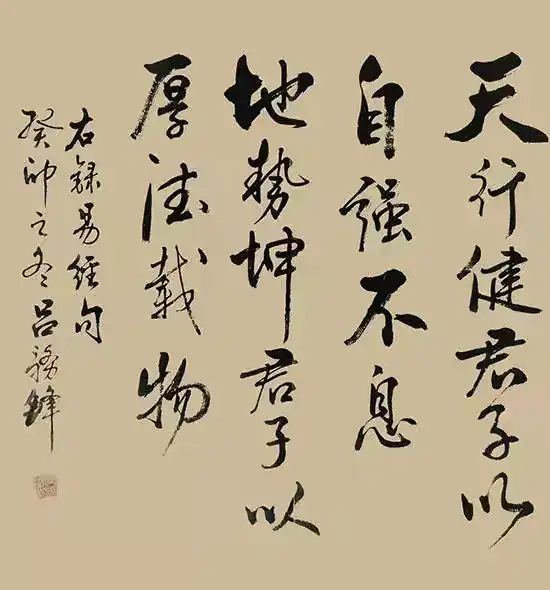 天行健君子以
自强不息
地势坤君子以
厚德载物
右録易经句
癸卯之冬吕务锋